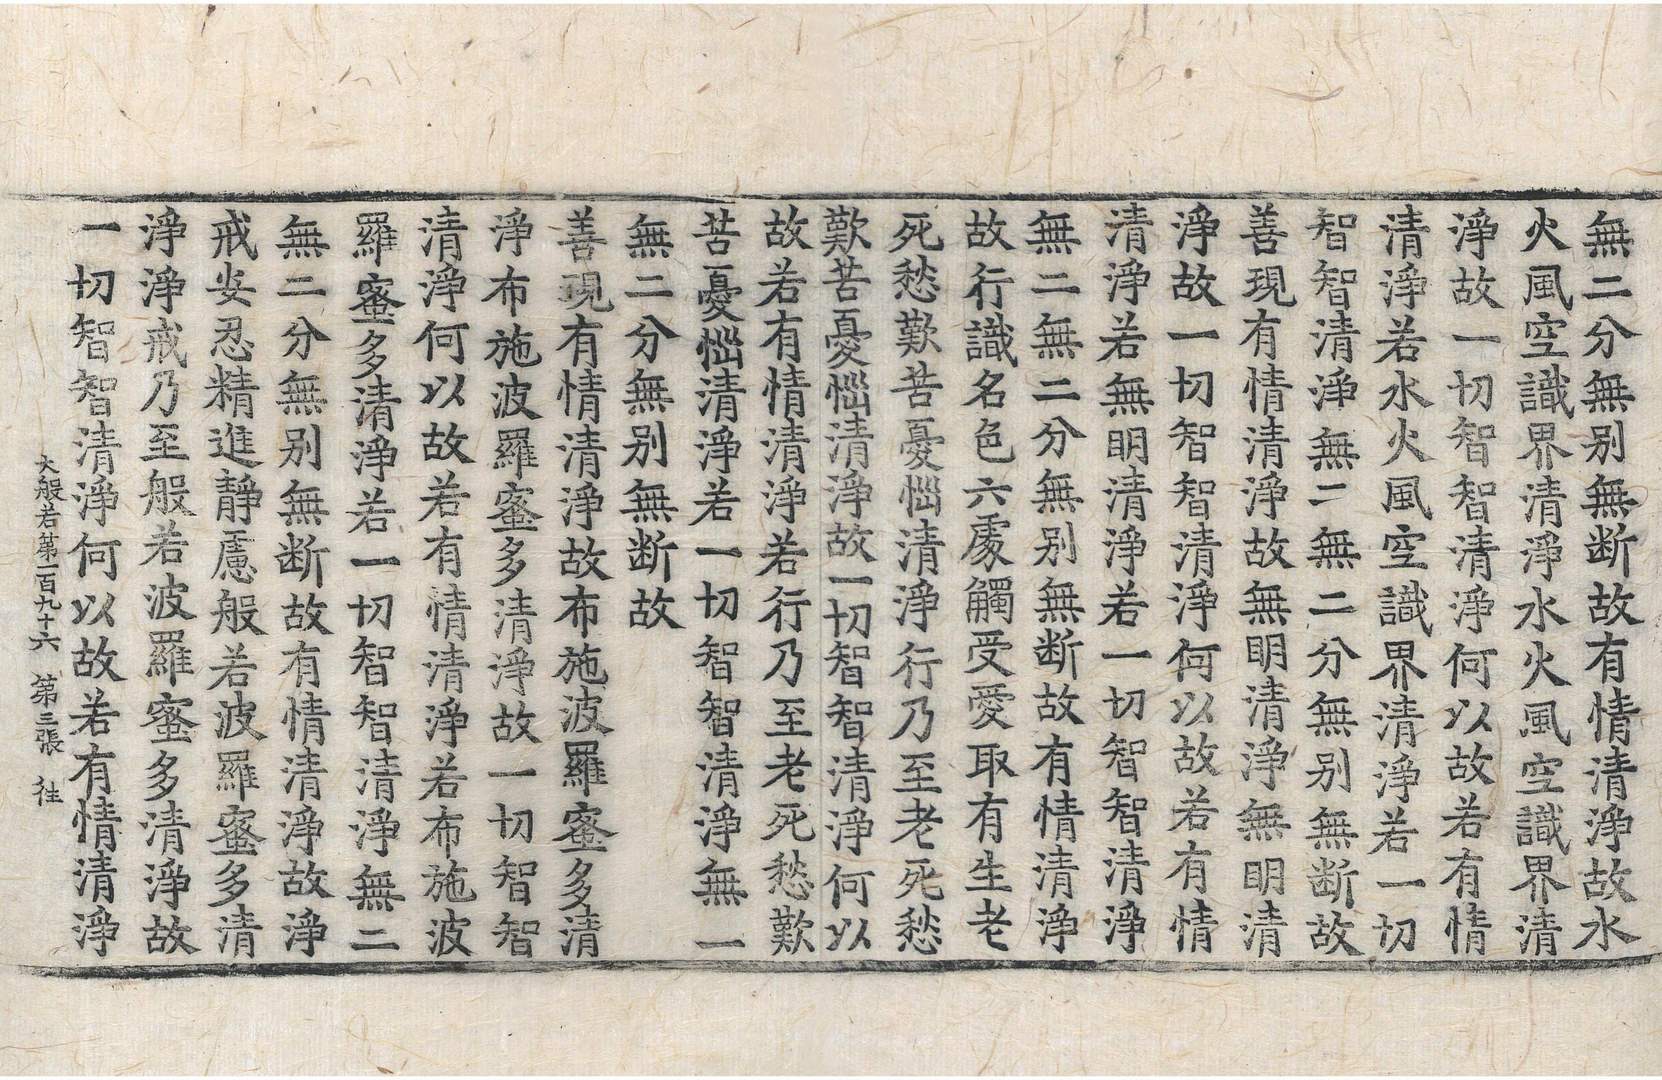 無二分無别無断故有情清淨故水
火風空識界清淨水火風空識界清
淨故一切智智清淨何以故若有情
清淨若水火風空識界清淨若一切
智智清淨無二無二分無别無断故
善現有情清淨故無眀清淨無眀清
淨故一切智智清淨何以故若有情
清淨若無眀清淨若一切智智清淨
無二無二分無别無断故有情清淨
故行識名色六處觸受愛取有生老
死愁歎苦憂惱清淨行乃至老死愁
歎苦憂惱清淨故一切智智清淨何以
故若有情清淨若行乃至老死愁歎
苦憂惱清淨若一切智智清淨無一
無二分無别無断故
善現有情清淨故布施波羅蜜多清
淨布施波羅蜜多清淨故一切智智
清淨何以故若有情清淨若布施波
羅蜜多清淨若一切智智清淨無二
無二分無别無断故有情清淨故淨
戒安忍精進靜慮般若波羅蜜多清
淨淨戒乃至般若波羅蜜多清淨故
一切智智清淨何以故若有情清淨
大般若第一百九十六 第三張 往